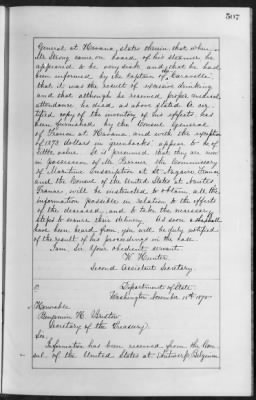 507
General at Havana, states therein, that when
Mr Strong came on board of his steamer he
appeared to be very drunk and that he had
been informed by the Captain of the "Caravelle"
that it was the result of excessive drinking
and that although he received proper medical
attendance he died, as above stated. A cer-
tified copy of the inventory of his effects has
been furnished by the Consul General
of France at Havana, and with the exception
of 1878 dollars in greenbacks, appear to be of
little value. It is presumed that they are now
in possession of Mr Perrier the Commissary
of Maritime Inscription at St. Nazaire France
and the Consul of the United States at Nantes
France will be instructed to obtain all the
information possible in relation to the effects
of the deceased, and to take the necessary
steps to ensure their delivery. As soon as he shall
have been heard from, you will be duly notified
of the result of his proceedings in the case.
I am Sir Your obedient servant
W. Hunter
Second Assistant Secretary.
Department of State
Washington November 18th 1875
Honorable
Benjamin H. Bristow
Secretary of the Treasury.
Sir,
Information has been received from the Con-
sul of the United States at Antwerp Belgium